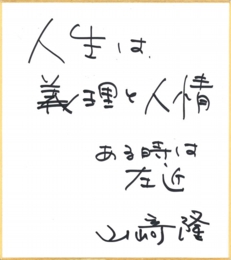 人生は、
義理と人情
ある時は
左近
山﨑隆